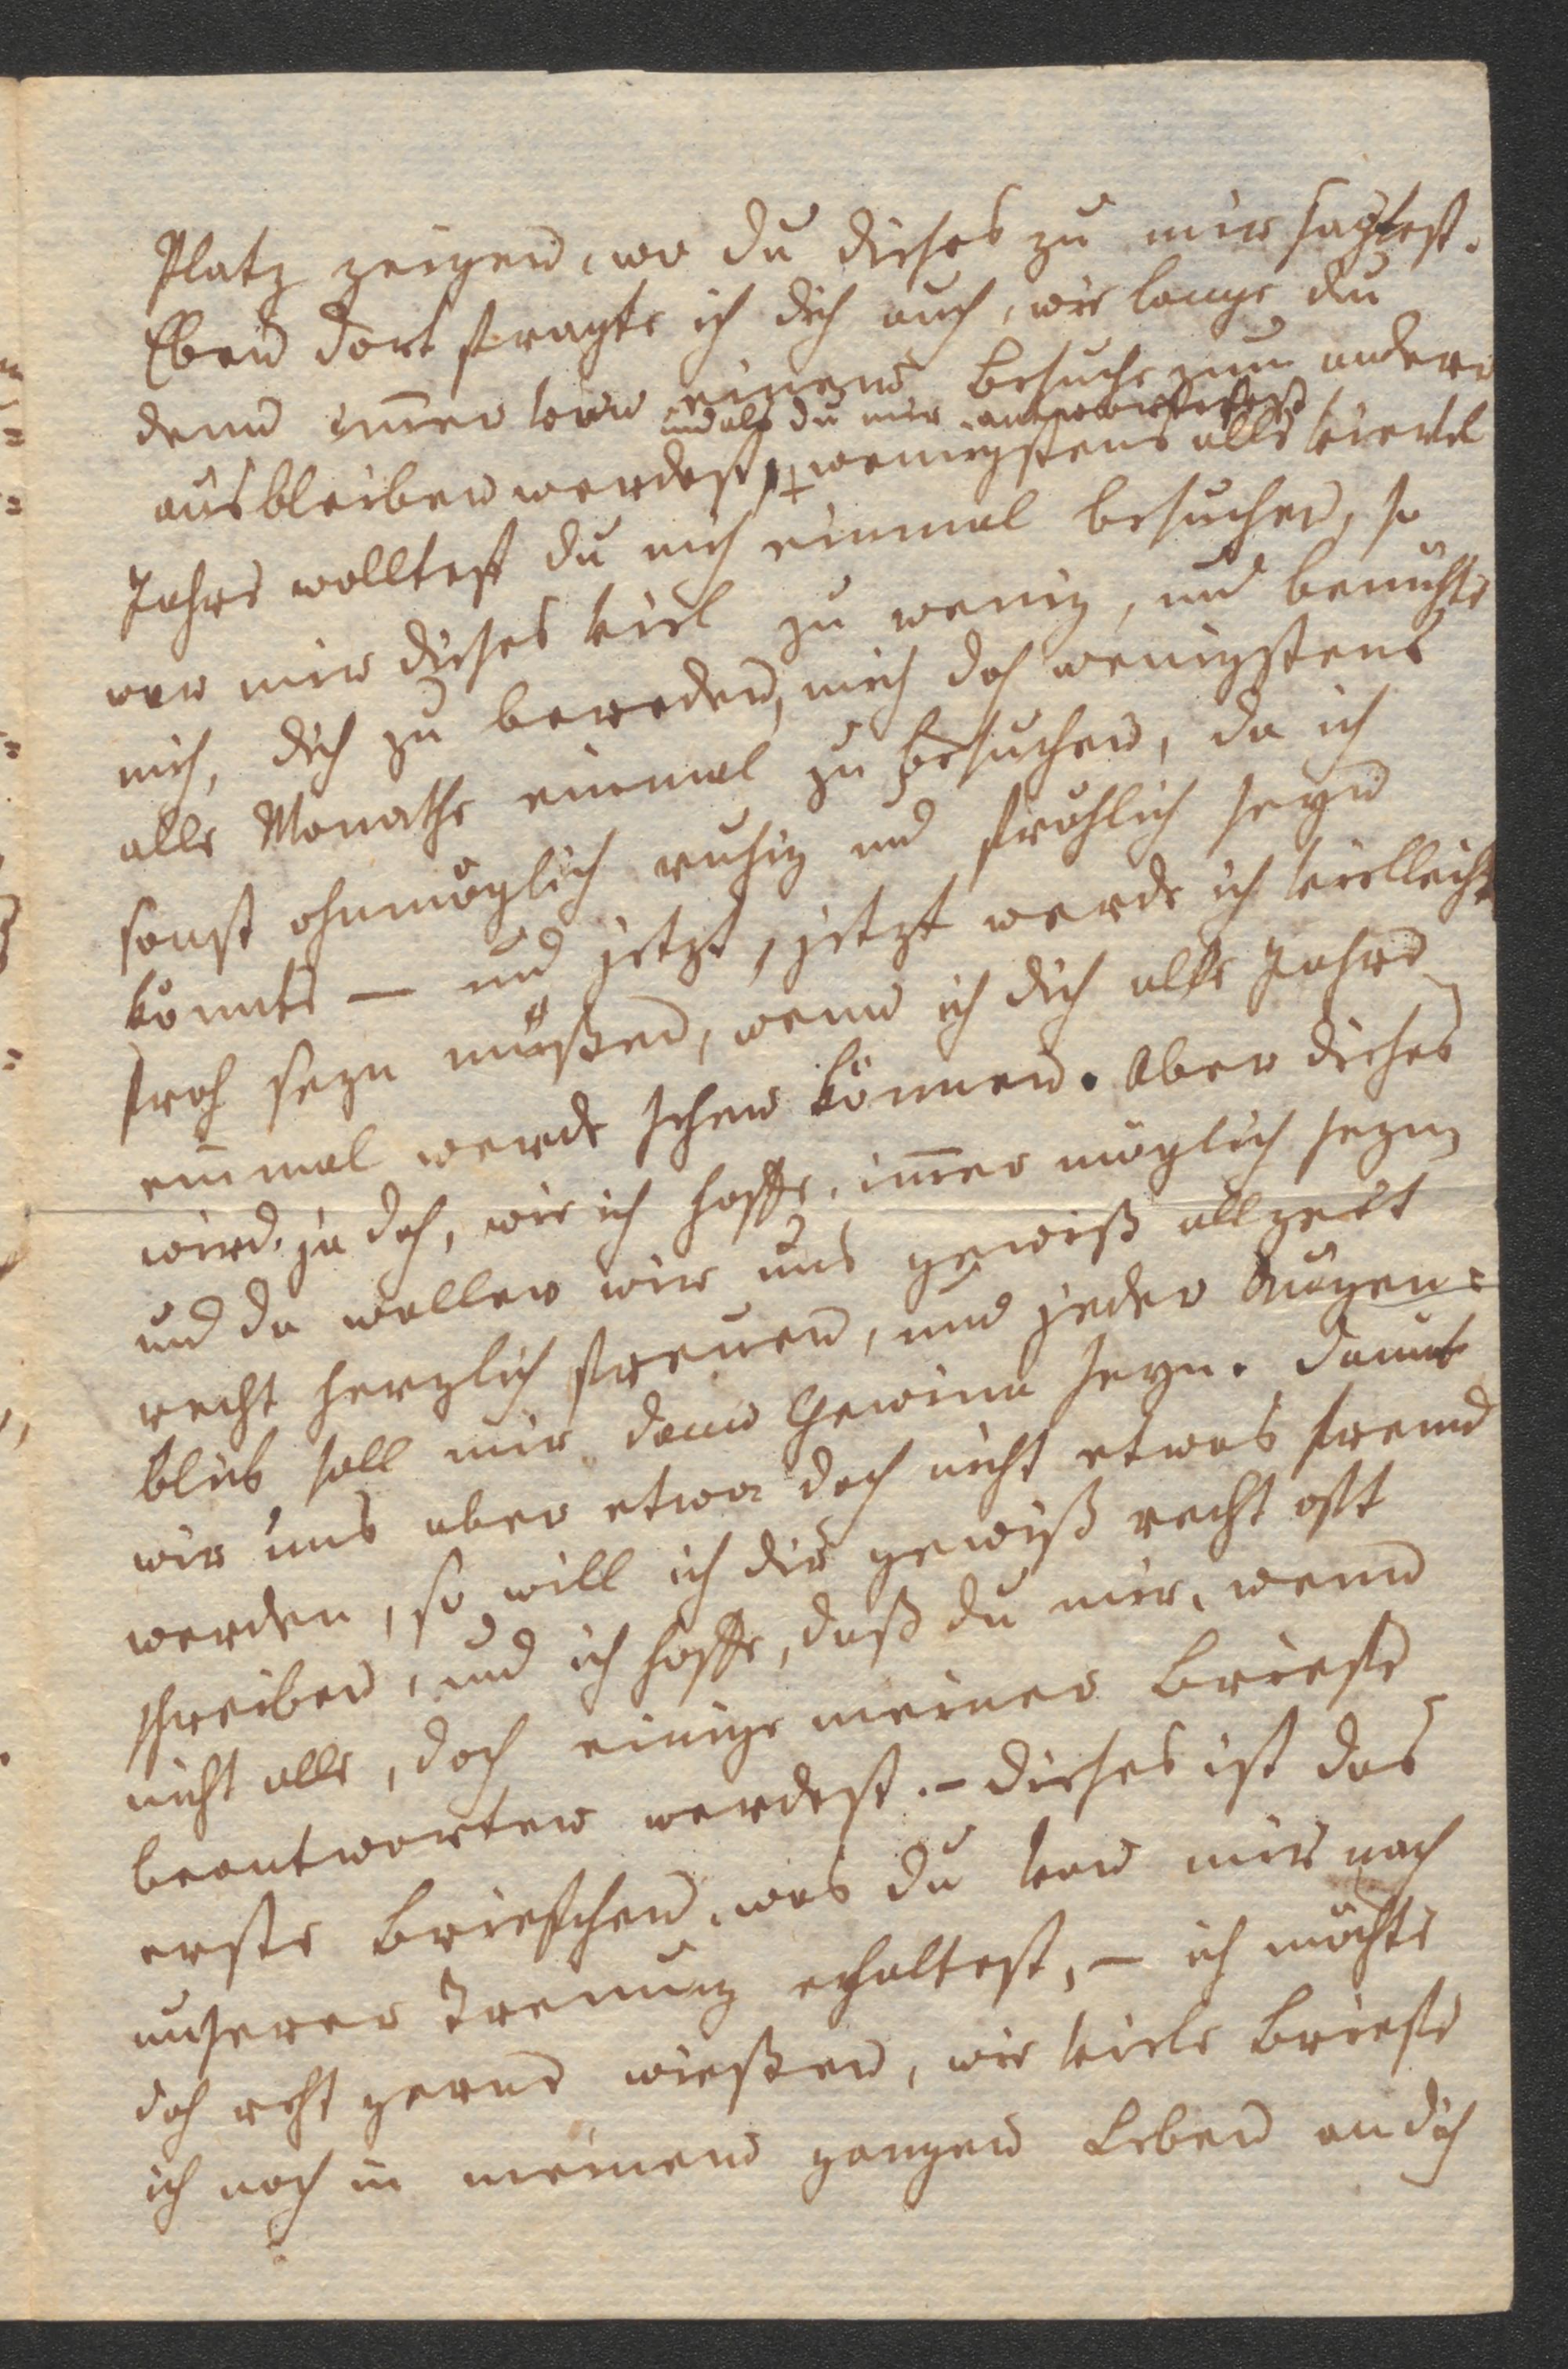 Platz zeigen, wo du dieses zu mir sagtest.
Eben dort fragte ich dich auch, wie lange du
denn im̄er von einem Besuche zum andern
und als du mir antwortetest
ausbleiben werdest, + wenigstens alle viertel
Jahre wolltest du mich einmal besuchen, so
war mir dieses viel zu wenig, und bemühte
mich, dich zu bereden, mich doch wenigstens
alle Monathe einmal zu besuchen, da ich
sonst ohnmöglich ruhig und fröhlich seyn
könnte — und jetzt, jetzt werde ich vielleicht
froh seyn müßen, wenn ich dich alle Jahre
einmal werde sehen können. Aber dieses
wird ja doch, wie ich hoffe, im̄er möglich seyn,
und da wollen wir uns gewiß allzeit
recht herzlich freuen, und jeder Augen=
blick soll mir dann Gewinn seyn. Damit
wir uns aber etwa doch nicht etwas fremd
werden, so will ich dir gewiß recht oft
schreiben, und ich hoffe, daß du mir, wenn
nicht alle, doch einige meiner Briefe
beantworten werdest. – Dieses ist das
erste Briefchen, was du von mir nach
unserer Trenung erhaltest, – ich möchte
doch recht gerne wießen, wie viele Briefe
ich noch in meinem ganzen Leben an dich